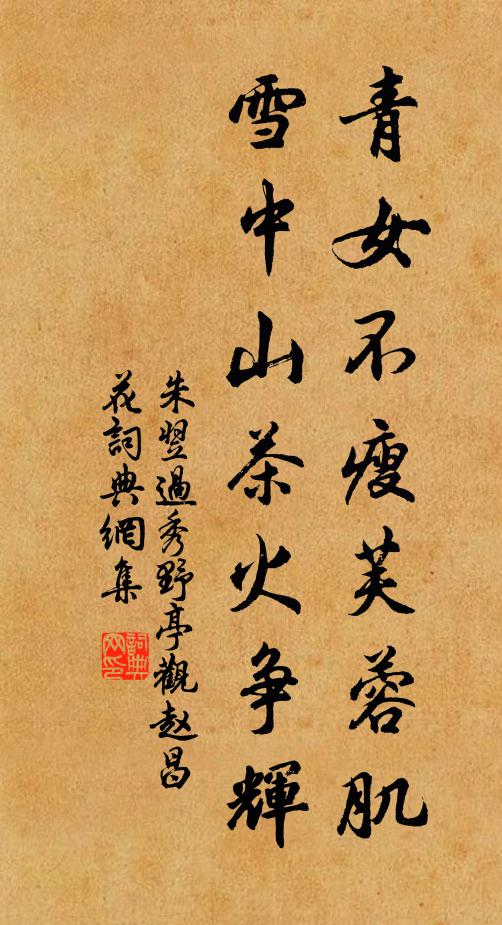 青女不瘦芙蓉肌
雪中山茶火争輝
朱翌過秀野亭觀赵昌
花詞典網集
詞典网印